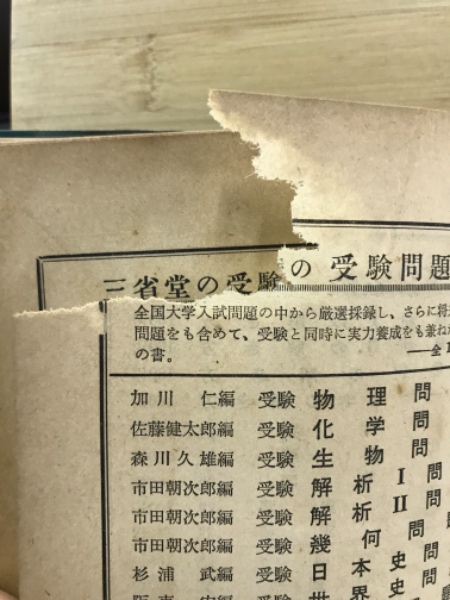 三省堂の受験の 受験問題
全国大学入試問題の中から厳選採録し、さらに将
問題をも含めて、受験と同時に実力養成をも兼ね
の書。 ――全
加川 仁編 受験 物理 問
佐藤健太郎編 受験 化学 問
森川久雄編 受験 生物 問
市田朝次郎編 受験 解析 I 問
市田朝次郎編 受験 解析 II 問
市田朝次郎編 受験 幾何 問
杉浦 武編 受験 日本史 問
受験 世界史